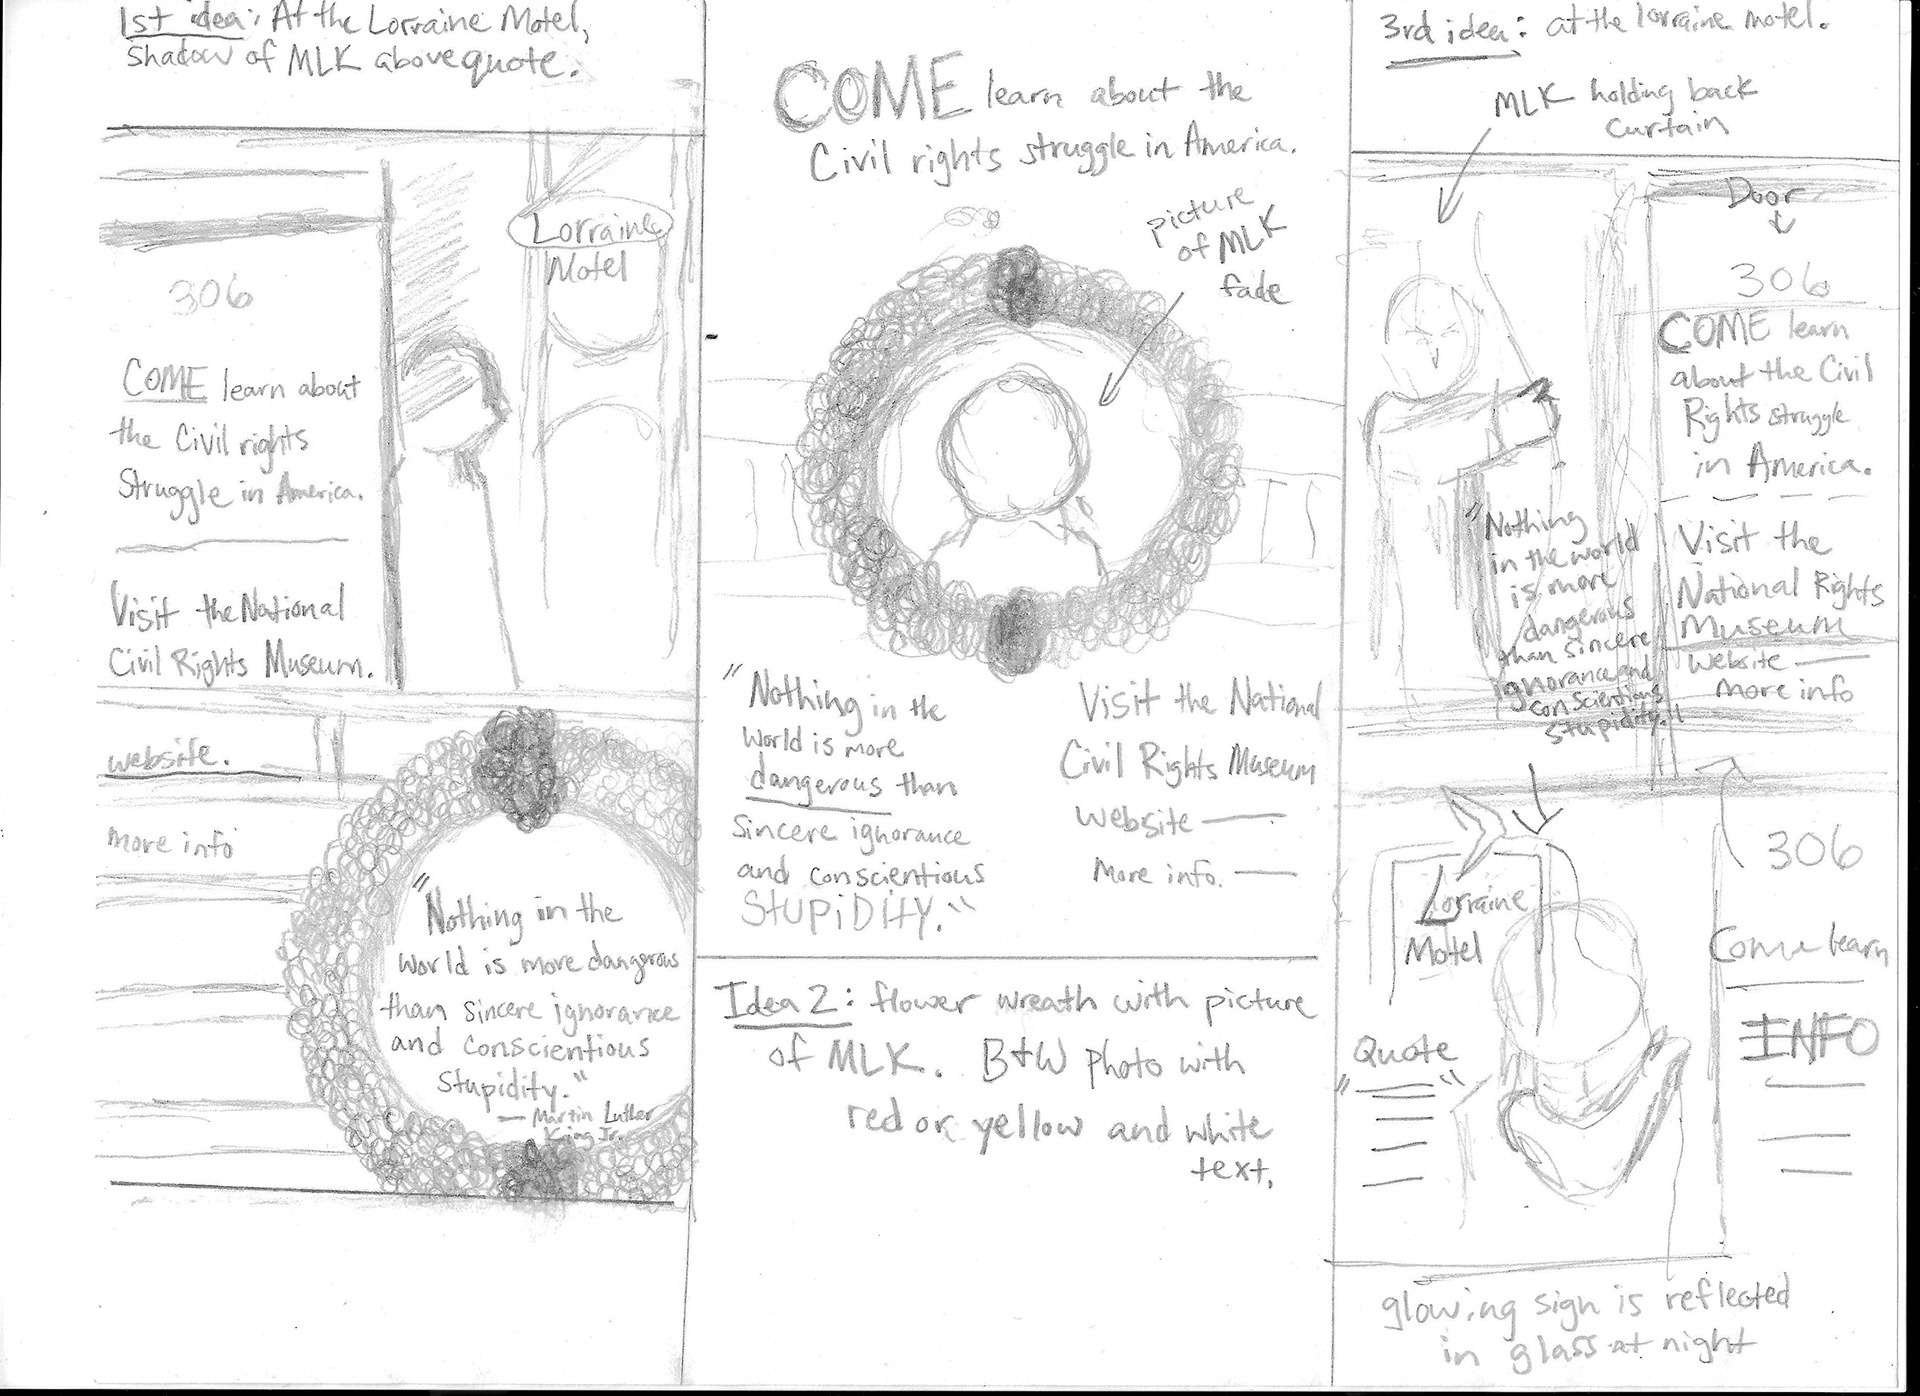 1st idea: At the Lorraine Motel,
Shadow of MLK above quote.
Lorraine
Motel
306
COME learn about
the Civil rights
Struggle in America.
Visit the National
Civil Rights Museum.
website.
more info
"Nothing in the
world is more dangerous
than sincere ignorance
and conscientious
Stupidity."
— Martin Luther
King Jr.
COME learn about the
Civil rights struggle in America.
picture
of MLK
fade
"Nothing in the
World is more
dangerous than
sincere ignorance
and conscientious
STUPiDiTY."
Visit the National
Civil Rights Museum
Website —
More info. —
Idea 2: flower wreath with picture
of MLK. B+W photo with
red or yellow and white
text.
3rd idea: at the lorraine motel.
MLK holding back
curtain
Door
306
COME learn
about the Civil
Rights struggle
in America.
Visit the
National Rights
Museum
Website —
more info
"Nothing
in the world
is more
dangerous
than sincere
ignorance and
conscientious
stupidity."
Lorraine
Motel
306
Come learn
INFO
Quote
" "
glowing sign is reflected
in glass at night